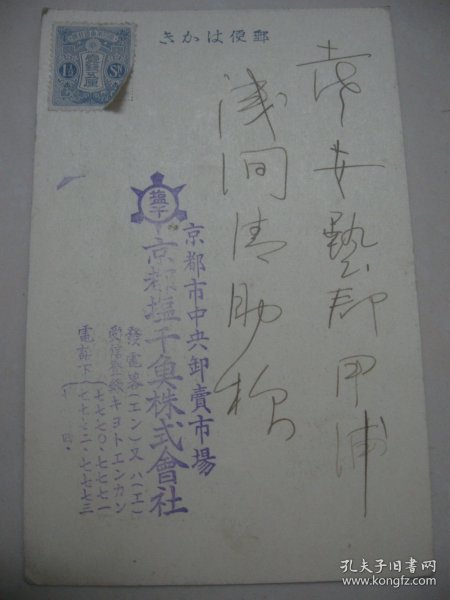 郵便はかき
1½ Sn
安芸郡甲浦
浅間清助様
塩干
京都市中央卸賣市場
京都塩干魚株式會社
發電畧(エン)又ハ(エ)
受信登録キヨトエンカン
電話下
七七七〇・七七七一
七七七二・七七七三
孔夫子旧书网
www.kongfz.com